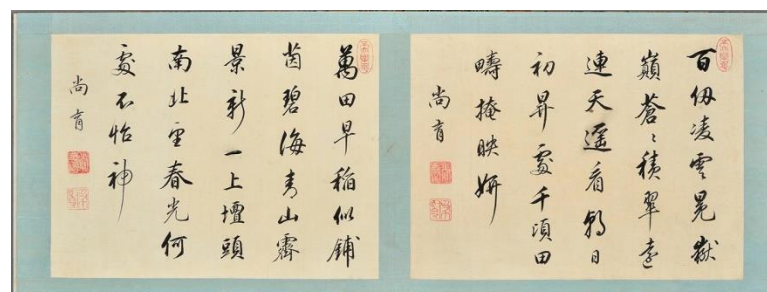 百仭凌雲冕嶽
巓蒼〻積翠遠
連天遥看朝日
初昇處千頃田
疇掩映妍
尚育
萬田早稲似鋪
茵碧海青山霽
景新一上壇頭
南北望春光何
處不怡神
尚育